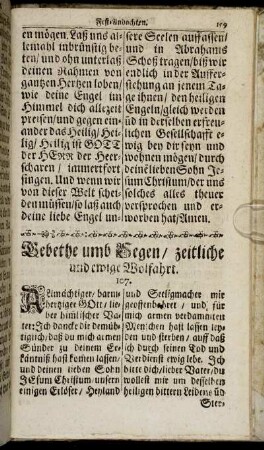 Fest-Andachten. 119
en mögen. Laß uns al-
lemahl inbrünstig be-
ten/ und ohn unterlaß
deinen Nahmen von
gantzen Hertzen loben/
wie deine Engel im
Himmel dich allezeit
preisen/ und gegen ein-
ander das Heilig/ Hei-
lig/ Heilig ist GOTT
der HERR der Heer-
scharen/ immerfort
singen. Und wenn wir
aus dieser Welt schei-
den müssen/ so laß auch
deine liebe Engel un-
sere Seelen auffassen/
und in Abrahams
Schoß tragen/ biß wir
endlich in der Auffer-
stehung an jenem Ta-
ge ihnen/ den heiligen
Engeln/ gleich werden
uñ in derselbē erfreu-
lichen Gesellschafft e-
wig bey dir seyn und
wohnen mögen/ durch
deinē liebē Sohn Je-
sum Christum/ der uns
solches alles theuer
versprochen und er-
worben hat/ Amen.
Gebethe umb Segen/ zeitliche
und ewige Wolfahrt.
107.
ALmächtiger/ barm-
hertziger GOtt/ lie-
ber himlischer Va-
ter: Ich dancke dir demü-
tiglich/ daß du mich armen
Sünder zu deinem Er-
käntniß hast kommen lassen/
und deinen lieben Sohn
JEsum Christum unsern
einigen Erlöser/ Heyland
und Seeligmacher mir
geoffenbahret/ und für
mich armen verdammten
Menschen hast lassen ley-
den und sterben/ auff daß
ich durch seinen Tod und
Verdienst ewig lebe. Ich
bitte dich/ lieber Vater/ du
wollest mir um desselben
heiligen bittern Leidens uñ
Ster-